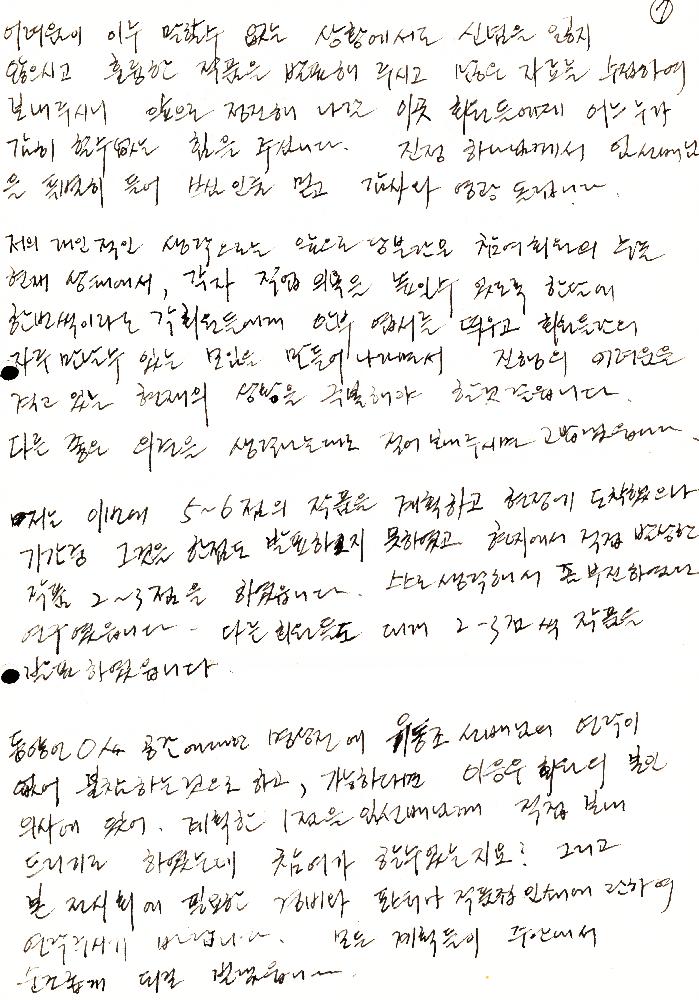 ①
어려움이 이루 말할수 없는 상황에서도 신념을 잃지
않으시고 훌륭한 작품을 발표해 주시고 많은 자료를 수집하여
보내주시니 앞으로 정진해 나갈 이곳 회원들에게 어느 누가
감히 할수없는 힘을 주십니다. 진정 하나님께서 임선배님
을 특별히 들어 쓰심을 믿고 감사와 영광 돌립니다.
저의 개인적인 생각으로는 앞으로 당분간은 참여회원의 수는
현재 상태에서, 각자 작업 의욕을 높일수 있도록 한달에
한번씩이라도 각회원들에게 안부 엽서를 띄우고 회원들간의
자주 만날수 있는 모임을 만들어 나가면서 진행의 어려움을
겪고 있는 현재의 상황을 극복해야 할것 같습니다.
다른 좋은 의견을 생각나는대로 적어 보내주시면 고맙겠습니다.
저는 이번에 5~6점의 작품을 계획하고 현장에 도착했으나
그것을 한점도 발표하지 못하였고 현지에서 직접 발상한
작품 2~3점을 하였습니다. 스스로 생각해서
다른회원들도 대개 2-3점씩 작품을
발표하였습니다.
공간 에
없어 불참하는것으로 하고, 가능하다면 이응우 회원의 본인
의사에 있어. 계획한 1점을 임선배님께 직접 보내
드리기로 하였는데 참여가 할수있는지요? 그리고
본 전시회에 필요한 경비와 작품집 인쇄에 관하여
연락주시기 바랍니다. 모든 계획들이 주안에서
순조롭게 되길 빌겠습니다.